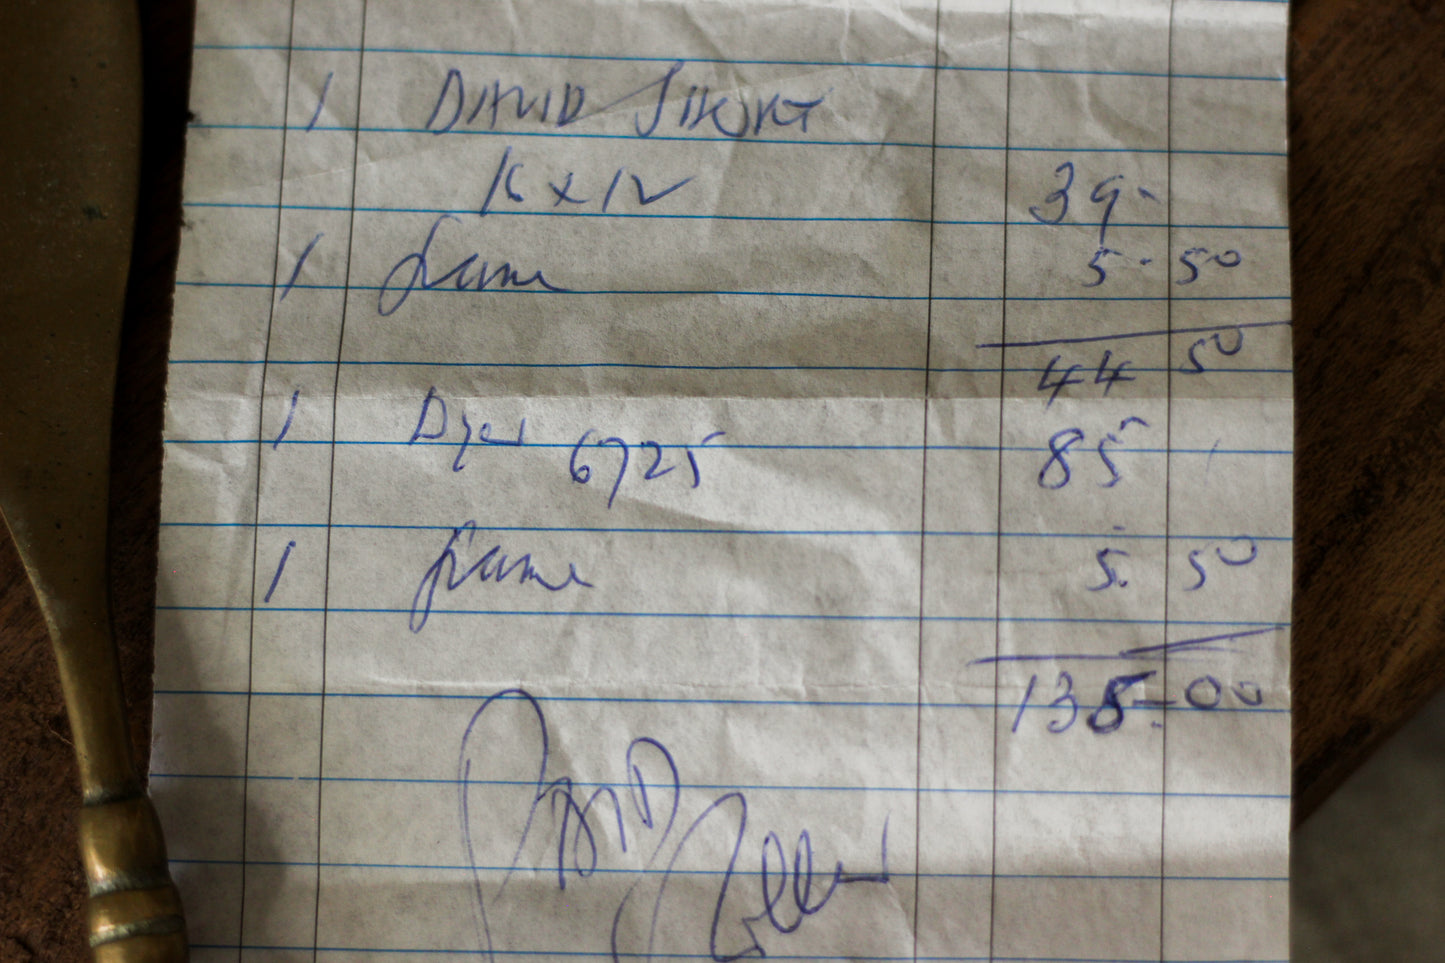 1 DAVID SHORT
16 x 12 39-
1 frame 5-50
44 50
1 6725 85
1 frame 5. 50
135-00